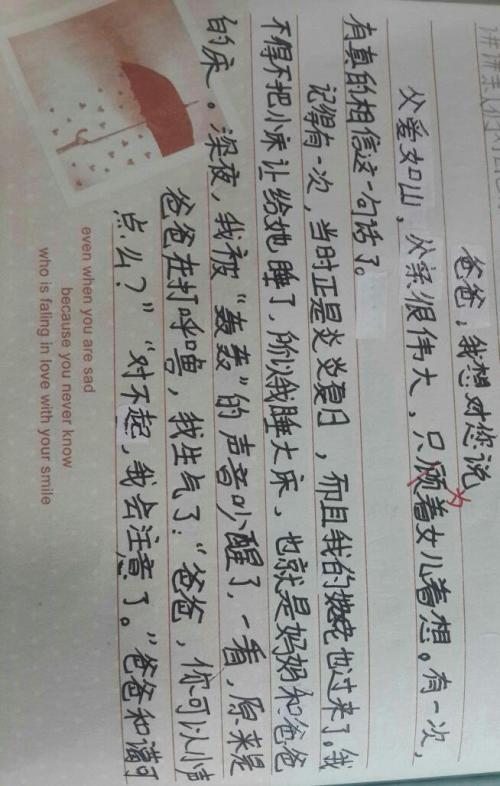 爸爸,我想对您说
父爱如山,父亲很伟大,只顾着为女儿着想。有一次,
有真的相信这一句话了。
记得有一次,当时正是炎炎夏日,而且我的姥姥也过来了。我
不得不把小床让给她睡了,所以我睡大床,也就是妈妈和爸爸
的床。深夜,我被“轰轰”的声音吵醒了,一看,原来是
爸爸在打呼噜,我生气了:“爸爸,你可以小声
点么?”“对不起,我去注意了。”爸爸和蔼可
even when you are sad
because you never know
who is falling in love with your smile